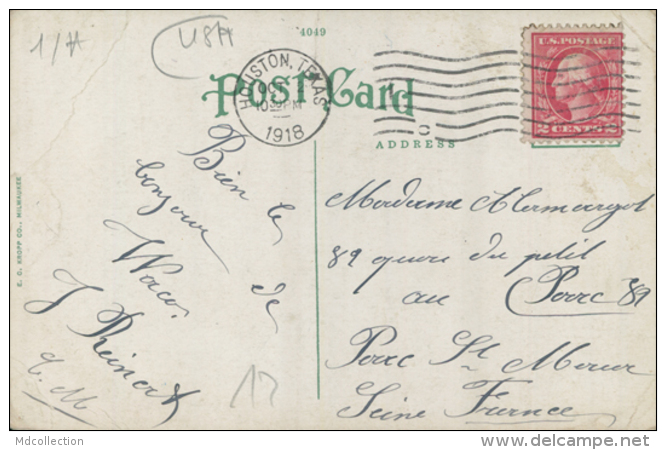 1/A
USA
4049
Post Card
HOUSTON, TEXAS
OCT
10 PM
1918
U.S. POSTAGE
2 CENTS 2
ADDRESS
E. C. KROPP CO., MILWAUKEE
Bien le
bonjour de
Waco.
J Reinert
Madame
89 quai du petit
au Parc 89
Parc St Maur
Seine France
Mdcollection
www.delcampe.net